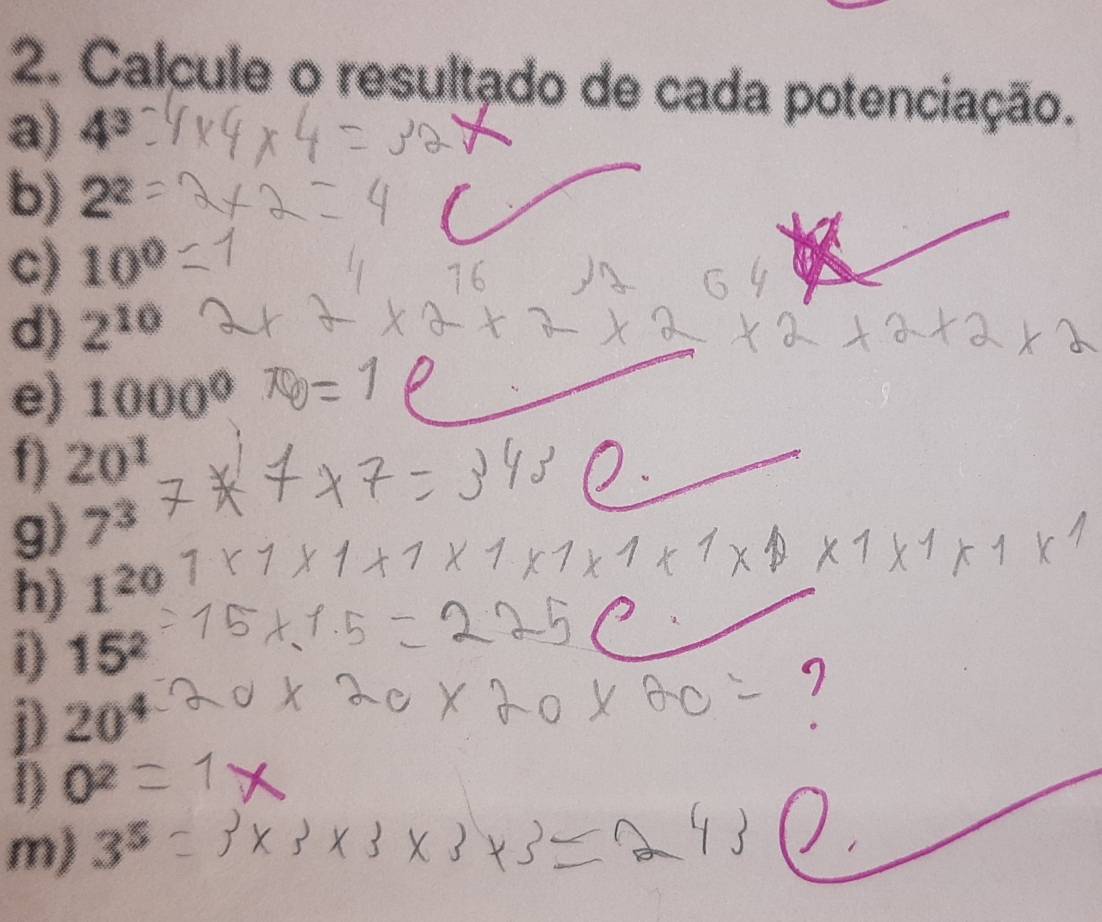 2. Calcule o resultado de cada potenciação.
a) 4³ = 4 x 4 x 4 = 32 x
b) 2² = 2 x 2 = 4
c) 10⁰ = 1
4 16 32 64
d) 2¹⁰ 2 x 2 x 2 x 2 x 2 x 2 x 2 x 2 x 2
e) 1000⁰ = 1
f) 20¹
g) 7³ 7 x 7 x 7 = 343
h) 1²⁰ 1 x 1 x 1 x 1 x 1 x 1 x 1 x 1 x 1 x 1 x 1 x 1 x 1
i) 15² = 15 x 15 = 225
j) 20⁴ = 20 x 20 x 20 x 20 = ?
l) 0² = 1 x
m) 3⁵ = 3 x 3 x 3 x 3 x 3 = 243